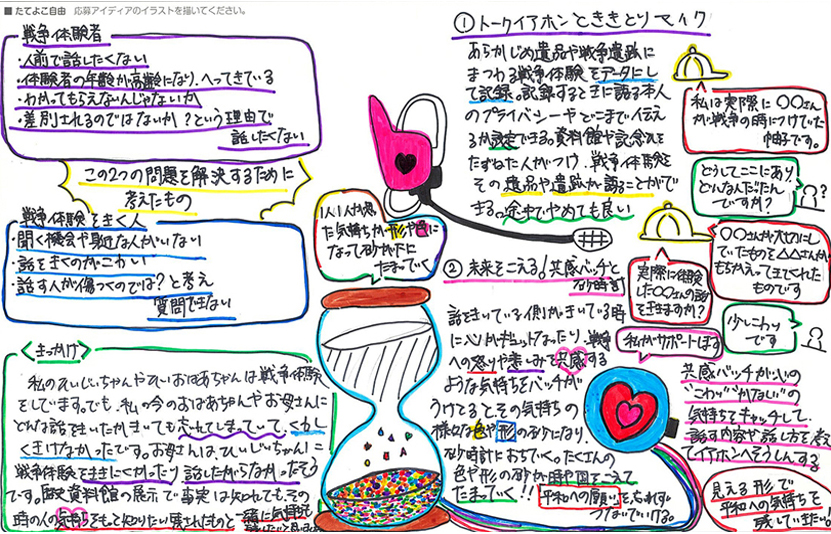 ■ たてよこ自由 応募アイディアのイラストを描いてください。
戦争体験者
・人前で話したくない
・体験者の年齢が高齢になり、へってきている
・わかってもらえないんじゃないか
・差別されるのではないか?という理由で
話したくない
この2つの問題を解決するために
考えたもの
戦争体験をきく人
・聞く機会や身近な人がいない
・話をきくのがこわい
・話す人が傷つくのでは?と考え
質問できない
<きっかけ>
私のひいじいちゃんやひいおばあちゃんは戦争体験
をしています。でも、私の今のおばあちゃんやお母さんに
どんな話をきいたかきいてもぼやけてしまっていて、くわしく
きけなかったです。お母さんは、ひいじいちゃんに
戦争体験をききにくかったり、話したがらなかったそう
です。歴史資料館の展示で事実は知れても、その
時の人の気持ちをもって知りたい、残されたものと
一緒に気持ちも
1人1人が感じ
た気持ちが形や色に
なって砂が下に
たまっていく
① トークイアホンとききとりマイク
あらかじめ遺品や戦争遺跡に
まつわる戦争体験をデータにし
て記録。記録するときに語る本人
のプライバシーやどこまで伝え
るか設定できる。資料館や記念館を
たずねた人がつけ、戦争体験を
その遺品や遺跡が語ることがで
きる。途中でやめても良い
私は実際に〇〇さん
が戦争の時につけていた
帽子です。
どうしてここにあり、
どんなんだったん
ですか?
〇〇さんが大切にし
ていたものを△△さんが
もちかえってきてくれた
ものです
実際に体験
した〇〇さんの話
をききますか?
少しこわい
です
私がサポートします
② 未来をこえる!共感バッチと
砂時計
話をきいている側がきいている時
に心がギュッとなったり、戦争
への怒りや悲しみを共感する
ような気持ちをバッチが
うけとるとその気持ちの
様々な色や形の砂になり、
砂時計におちていく。たくさんの
色や形の砂が時や国をこえて
たまっていく!!
平和への願いを忘れず
つないでいける。
共感バッチが心の
"こわい""かなしい"の
気持ちをキャッチして、
話す内容や話し方を考え
てイアホンへそうしんする
見える形で
平和への気持ちを
残していきたい!